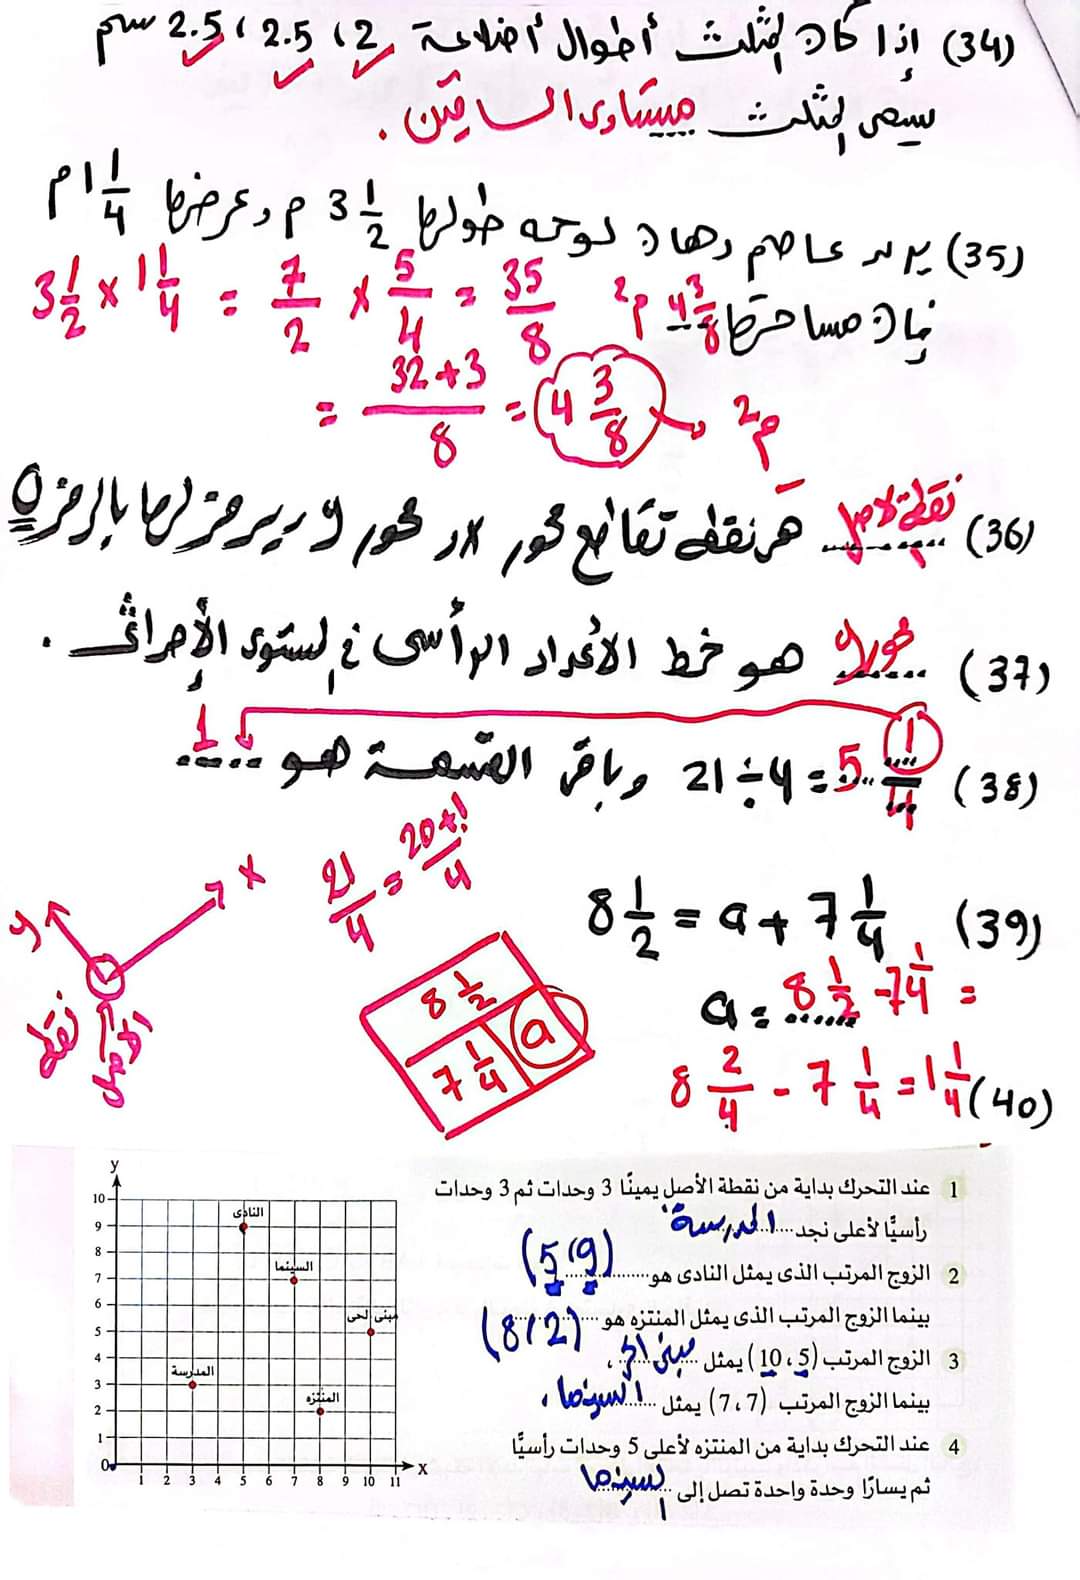 (34) إذا كان لمثلث أطوال أضلاعة 2 ، 2.5 ، 2.5 سم
يسمى المثلث متساوى الساقين .
(35) يريد عاصم دهان لوحه طولها 3 1/2 م وعرضها 1 1/4 م
فإن مساحتها 4 3/8 م²
3 1/2 × 1 1/4 = 7/2 × 5/4 = 35/8
= (32+3)/8 = 4 3/8 م²
(36) نقطة الأصل هى نقطة تقاطع محور x ومحور y ويرمز لها بالرمز 0
(37) محور y هو خط الأعداد الرأسى فى المستوى الإحداثى .
(38) 21 ÷ 4 = 5 1/4 وباقى القسمة هو 1
21/4 = (20+1)/4
(39) 8 1/2 = a + 7 1/4
a = 8 1/2 - 7 1/4 =
8 2/4 - 7 1/4 = 1 1/4
8 1/2
7 1/4 a
x
y
نقطة الأصل
(40)
1 عند التحرك بداية من نقطة الأصل يمينًا 3 وحدات ثم 3 وحدات
رأسيًّا لأعلى نجد المدرسة .
2 الزوج المرتب الذى يمثل النادى هو (5 ، 9)
بينما الزوج المرتب الذى يمثل المنتزه هو (8 ، 2)
3 الزوج المرتب (10 ، 5) يمثل مبنى الحى ،
بينما الزوج المرتب (7 ، 7) يمثل السينما .
4 عند التحرك بداية من المنتزه لأعلى 5 وحدات رأسيًّا
ثم يسارًا وحدة واحدة تصل إلى السينما
y
10
9
8
7
6
5
4
3
2
1
0
1 2 3 4 5 6 7 8 9 10 11 x
النادى
السينما
مبنى الحى
المدرسة
المنتزه